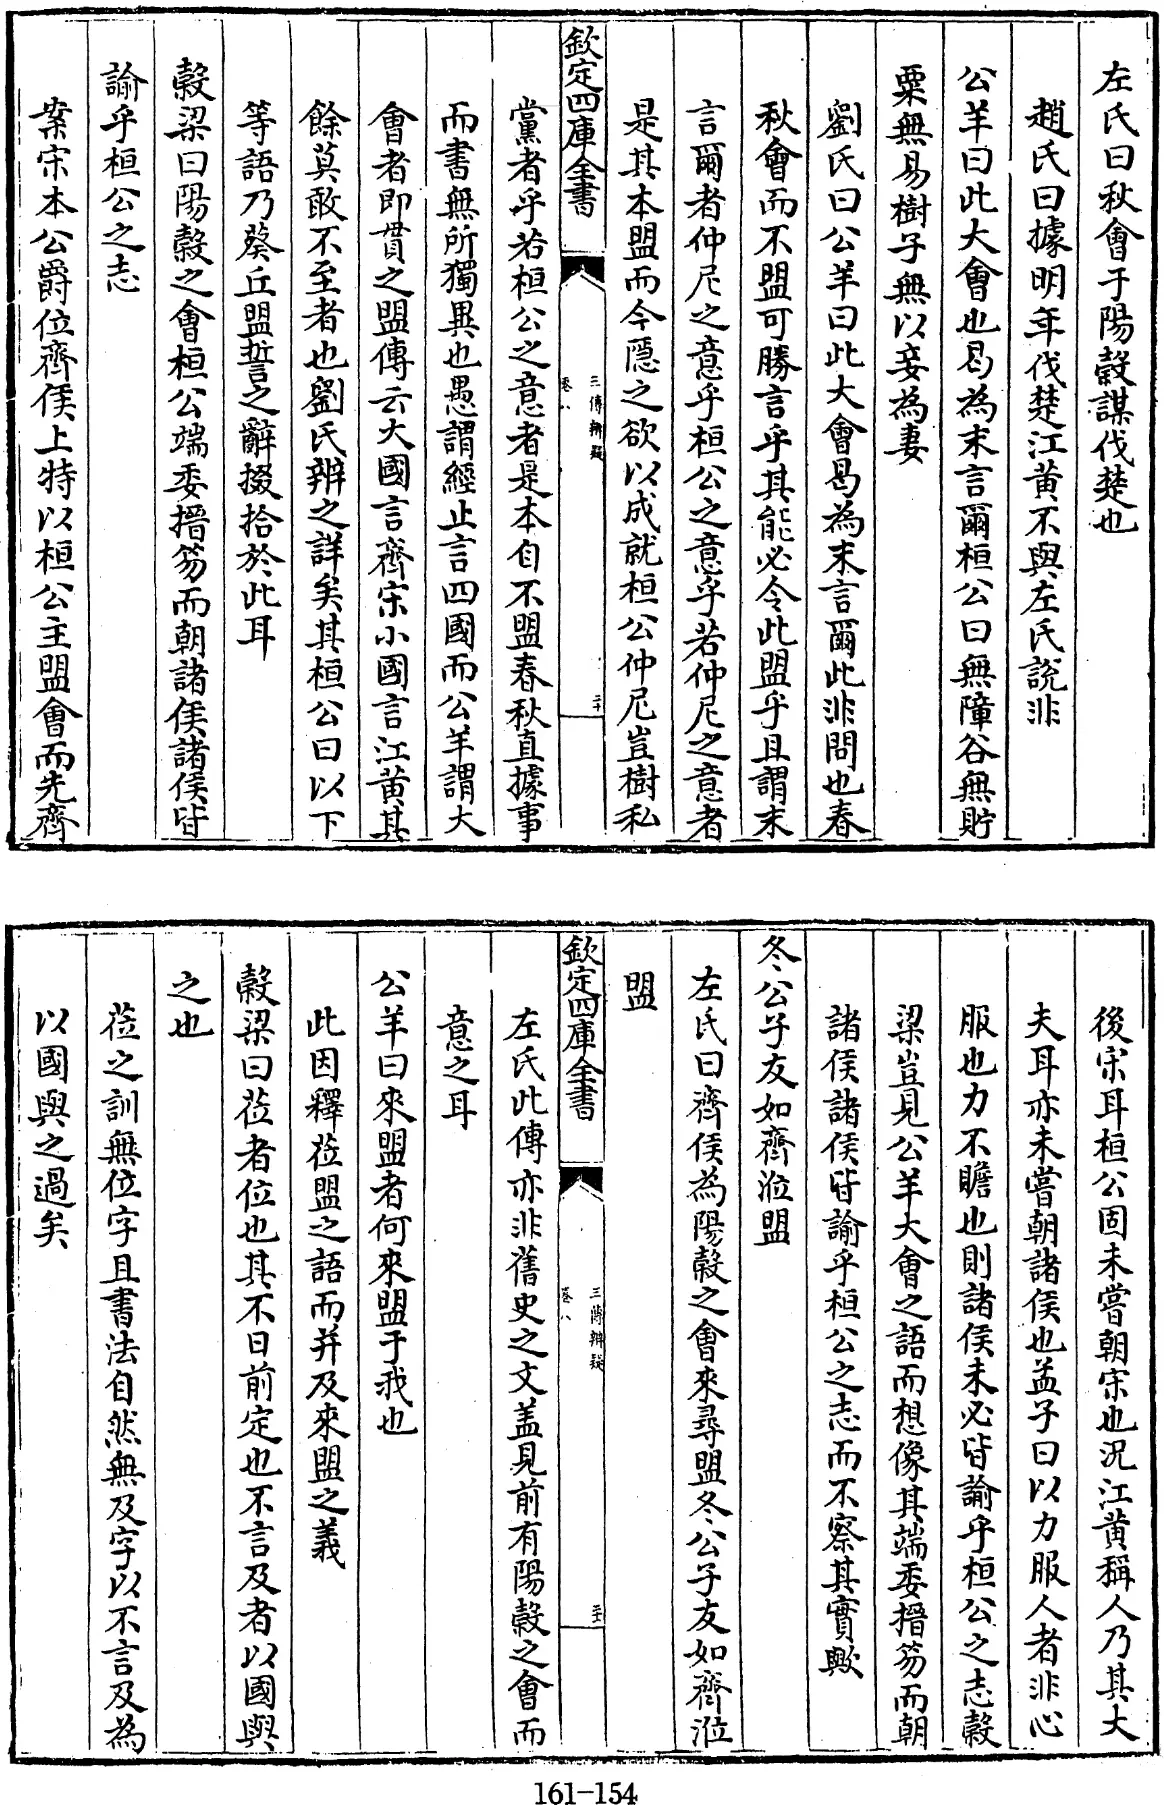 左氏曰秋會于陽糓謀伐楚也
趙氏曰據明年伐楚江黄不與左氏説非
公羊曰此大會也曷為末言爾桓公曰無障谷無貯
粟無易樹子無以妾為妻
劉氏曰公羊曰此大會曷為末言爾此非問也春
秋會而不盟可勝言乎其能必令此盟乎且謂末
言爾者仲尼之意乎桓公之意乎若仲尼之意者
是其本盟而今隠之欲以成就桓公仲尼豈樹私
欽定四庫全書
三傳辨疑
卷八
二十
黨者乎若桓公之意者是本自不盟春秋直據事
而書無所獨異也愚謂經止言四國而公羊謂大
會者即貫之盟傳云大國言齊宋小國言江黄其
餘莫敢不至者也劉氏辨之詳矣其桓公曰以下
等語乃葵丘盟誓之辭掇拾於此耳
糓梁曰陽糓之會桓公端委搢笏而朝諸侯諸侯皆
諭乎桓公之志
案宋本公爵位齊侯上特以桓公主盟會而先齊
後宋耳桓公固未嘗朝宋也况江黄稱人乃其大
夫耳亦未嘗朝諸侯也孟子曰以力服人者非心
服也力不贍也則諸侯未必皆諭乎桓公之志糓
梁豈見公羊大會之語而想像其端委搢笏而朝
諸侯諸侯皆諭乎桓公之志而不察其實歟
冬公子友如齊涖盟
左氏曰齊侯為陽糓之會來尋盟冬公子友如齊涖
盟
欽定四庫全書
三傳辨疑
卷八
二十一
左氏此傳亦非舊史之文盖見前有陽糓之會而
意之耳
公羊曰來盟者何來盟于我也
此因釋莅盟之語而并及來盟之義
糓梁曰莅者位也其不日前定也不言及者以國與
之也
莅之訓無位字且書法自然無及字以不言及為
以國與之過矣
161-154